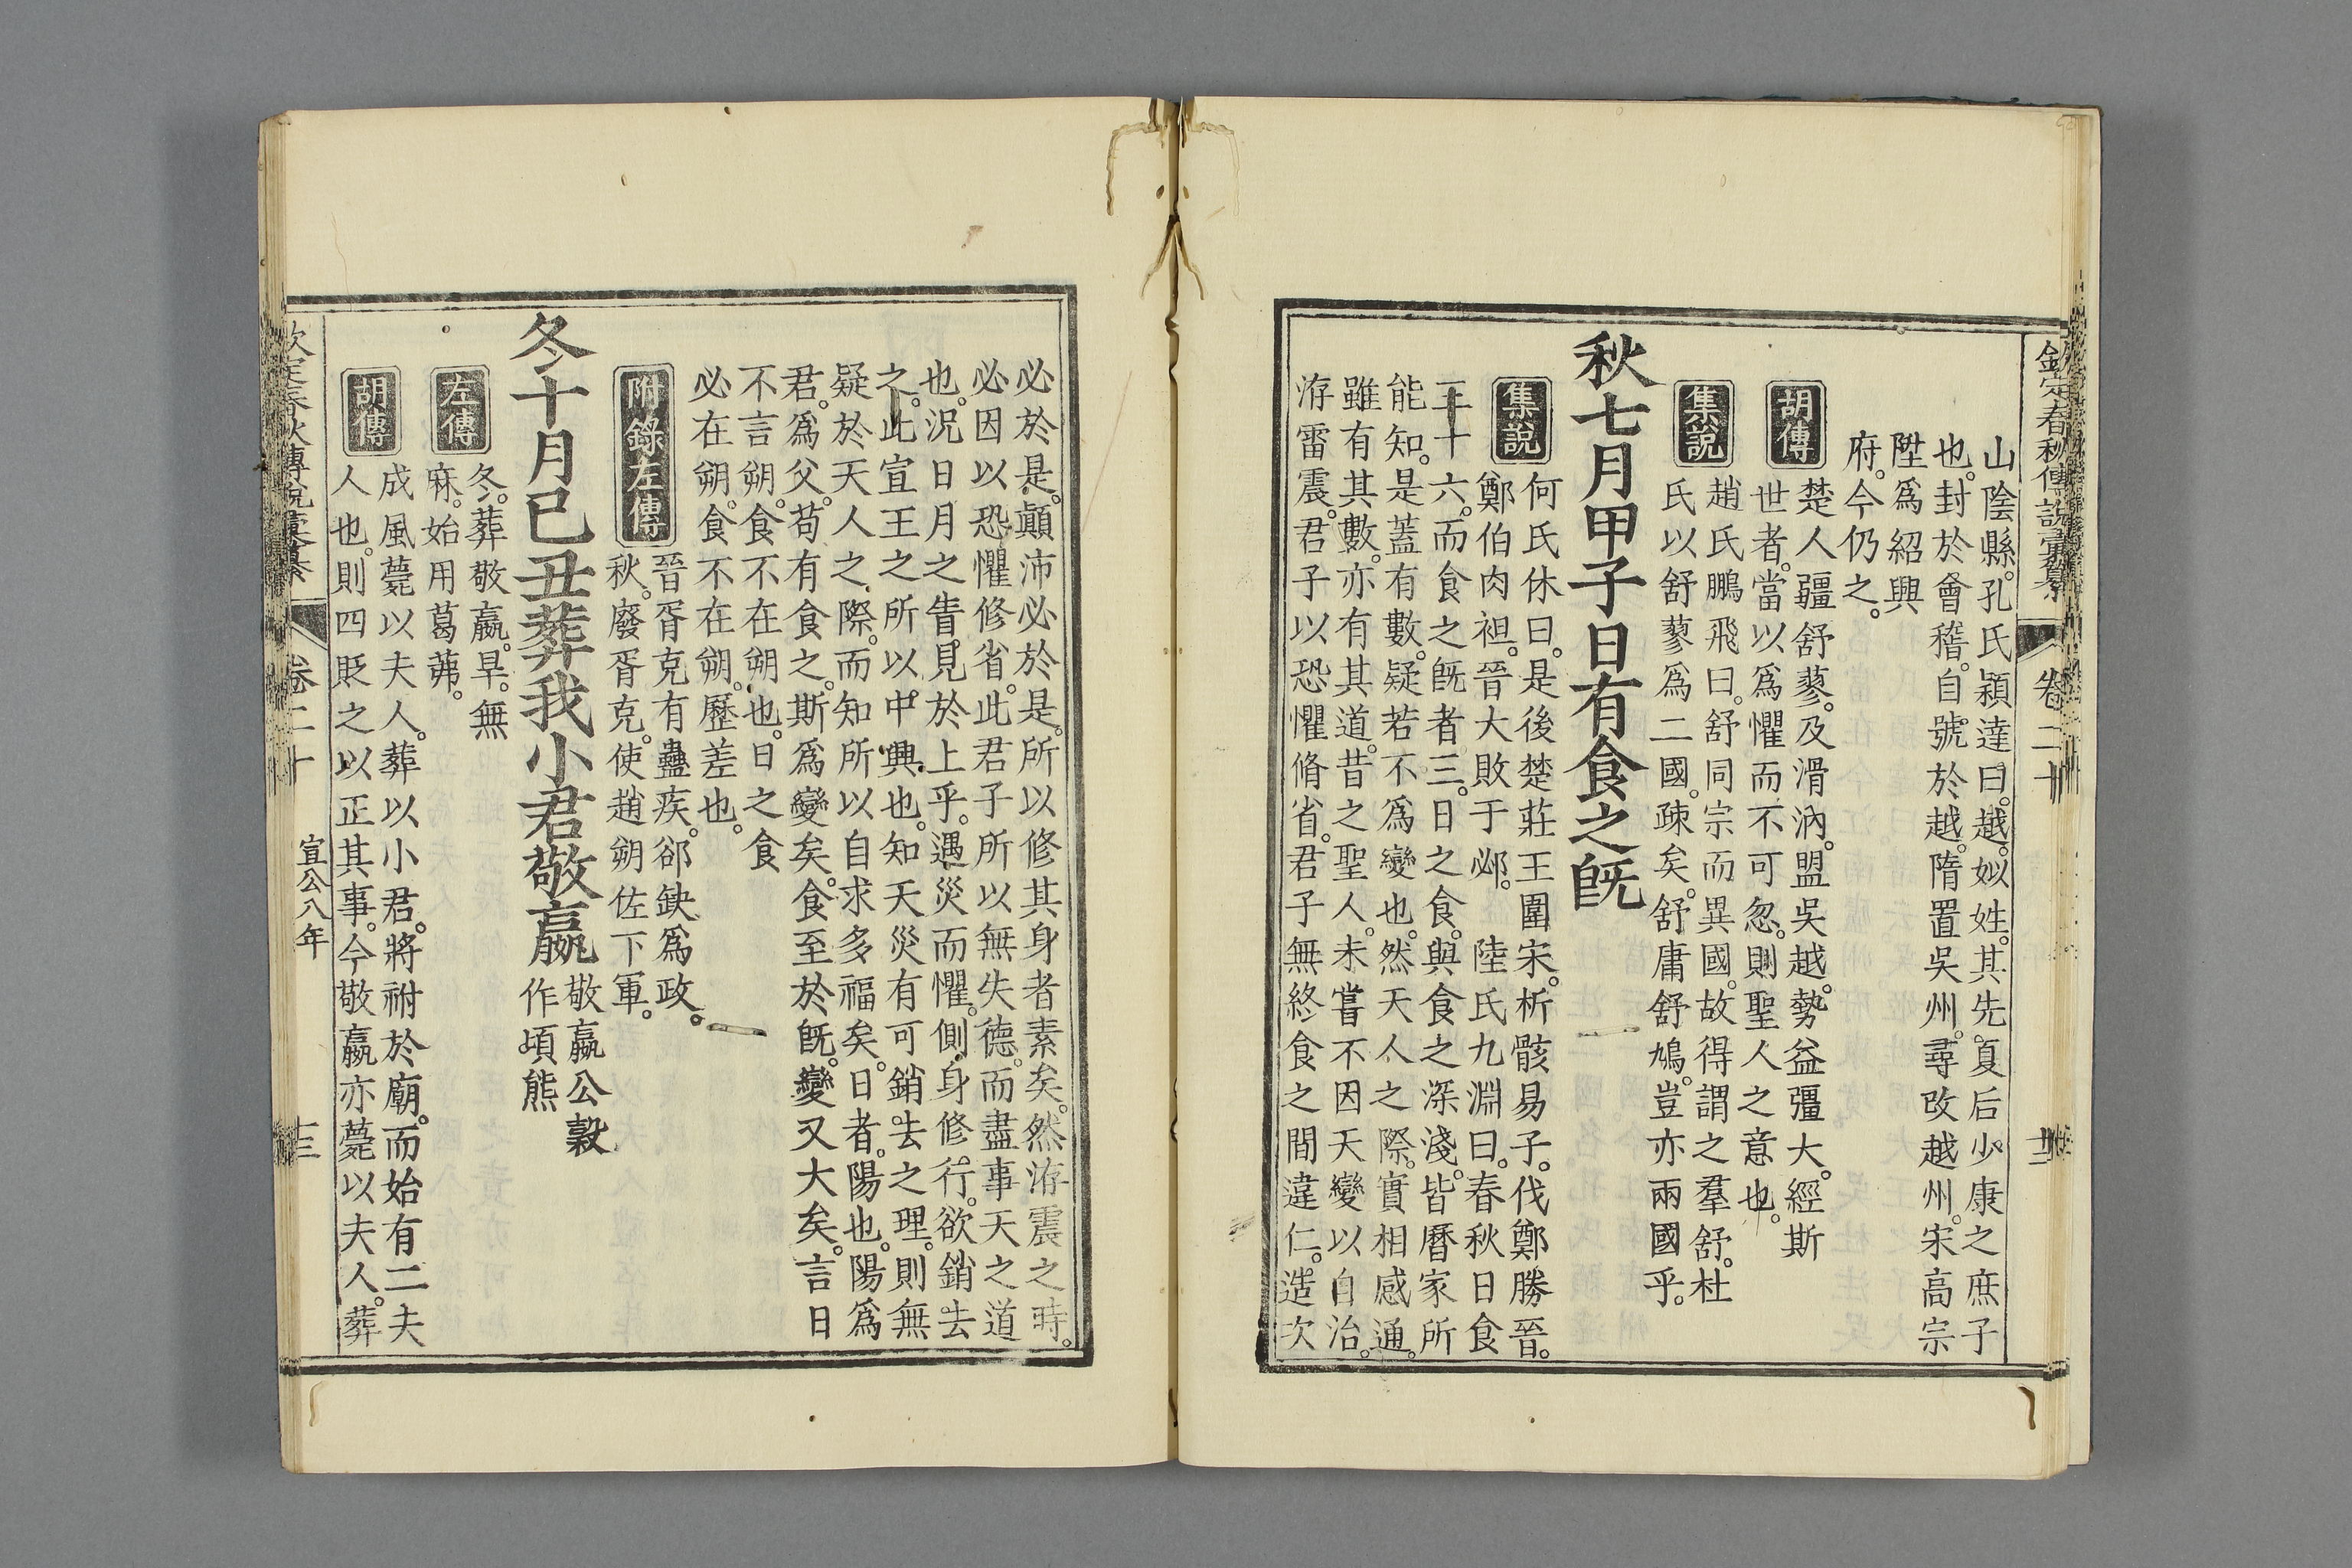 欽定春秋傳說彙纂 卷二十 十二
山陰縣。孔氏穎達曰。越。姒姓。其先夏后少康之庶子
也。封於會稽。自號於越。隋置吳州。尋改越州。宋高宗
陞爲紹興
府。今仍之。
胡傳
楚人疆舒蓼。及滑汭。盟吳越。勢益彊大。經斯
世者。當以爲懼而不可忽。則聖人之意也。
集說
趙氏鵬飛曰。舒同宗而異國。故得謂之羣舒。杜
氏以舒蓼爲二國。疎矣。舒庸舒鳩。豈亦兩國乎。
秋七月甲子日有食之旣
集說
何氏休曰。是後楚莊王圍宋。析骸易子。伐鄭勝晉。
鄭伯肉袒。晉大敗于邲。 陸氏九淵曰。春秋日食
三十六。而食之旣者三。日之食。與食之深淺。皆曆家所
能知。是蓋有數。疑若不爲變也。然天人之際。實相感通。
雖有其數。亦有其道。昔之聖人。未嘗不因天變以自治。
洊雷震。君子以恐懼脩省。君子無終食之間違仁。造次
必於是。顚沛必於是。所以修其身者素矣。然洊震之時。
必因以恐懼修省。此君子所以無失德。而盡事天之道
也。況日月之眚。見於上乎。遇災而懼。側身修行。欲銷去
之。此宣王之所以中興也。知天災有可銷去之理。則無
疑於天人之際。而知所以自求多福矣。日者。陽也。陽爲
君。爲父。苟有食之。斯爲變矣。食至於旣。變又大矣。言日
不言朔。食不在朔也。日之食
必在朔。食不在朔。歷差也。
附錄左傳
晉胥克有蠱疾。郤缺爲政。
秋。廢胥克。使趙朔佐下軍。
冬十月己丑葬我小君敬嬴
敬嬴公穀
作頃熊
左傳
冬。葬敬嬴。旱。無
麻。始用葛茀。
胡傳
成風薨以夫人。葬以小君。將祔於廟。而始有二夫
人也。則四貶之以正其事。今敬嬴亦薨以夫人。葬
欽定春秋傳說彙纂 卷二十 宣公八年 十三